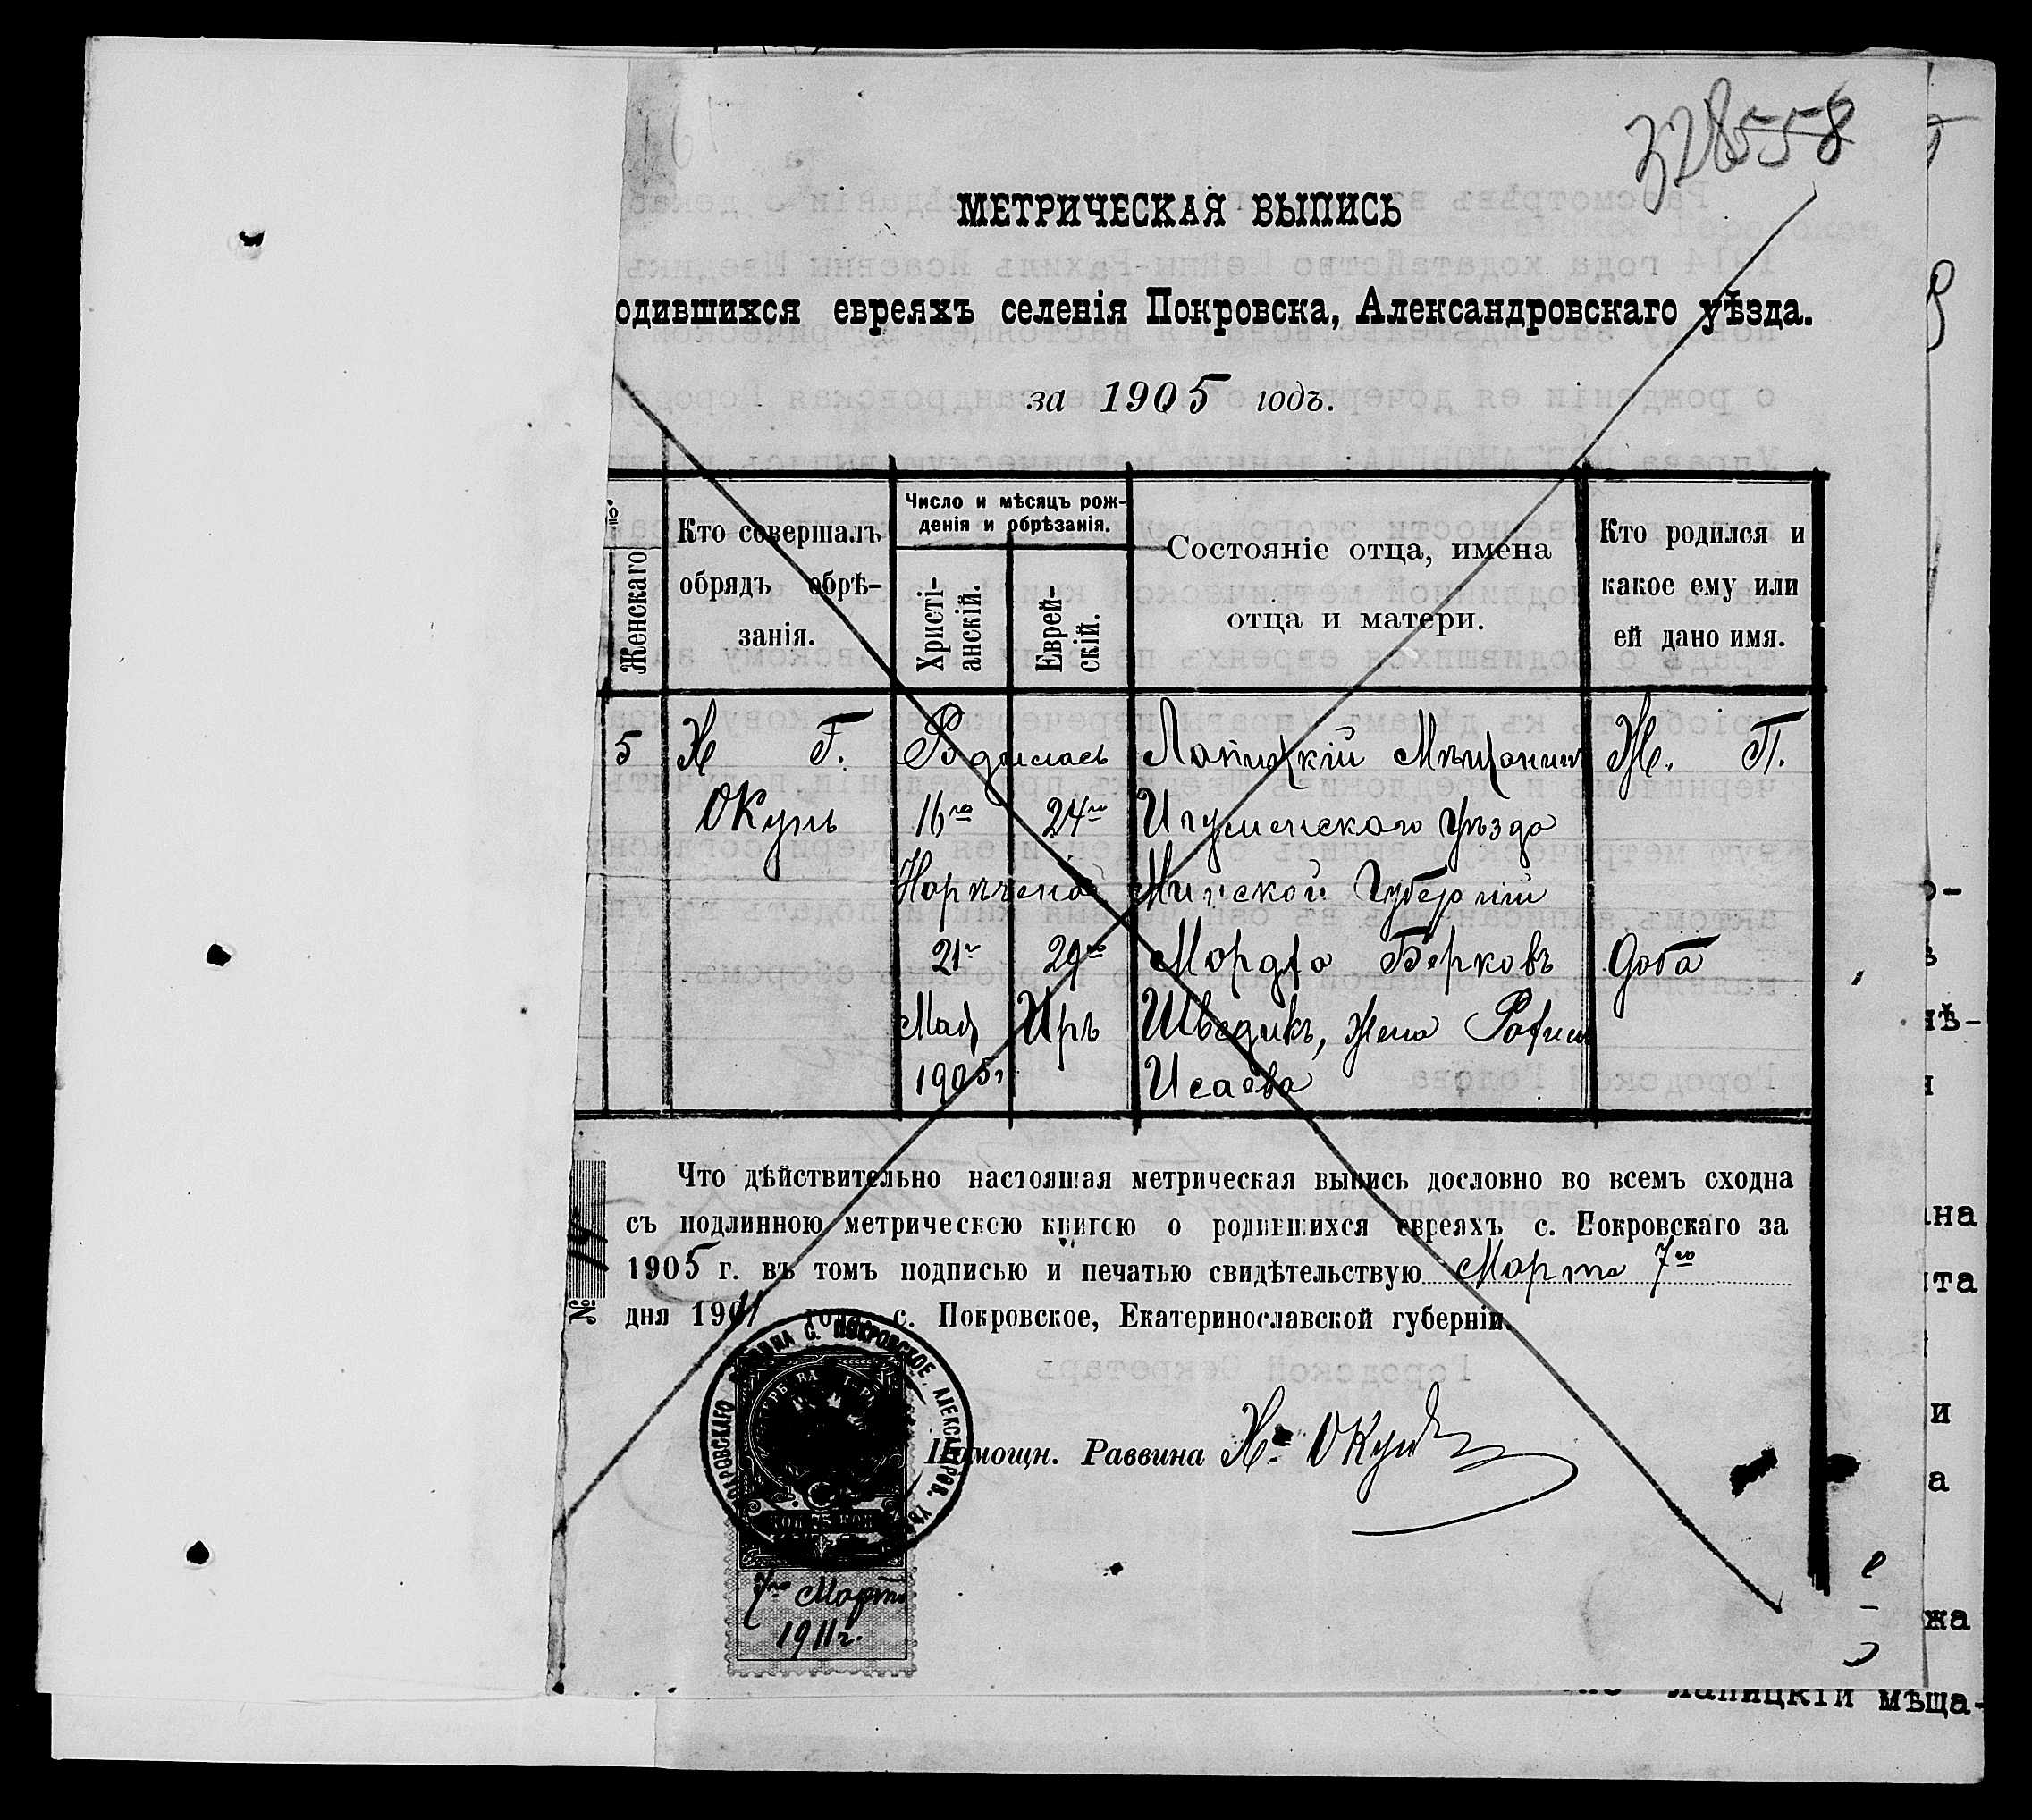 328558
МЕТРИЧЕСКАЯ ВЫПИСЬ
одившихся евреяхъ селенія Покровска, Александровскаго уѣзда.
за 1905 годъ.
№
Женскаго
Кто совершалъ
обрядъ обрѣ-
занія.
Число и мѣсяцъ рож-
денія и обрѣзанія.
Христі-
анскій.
Еврей-
скій.
Состояніе отца, имена
отца и матери.
Кто родился и
какое ему или
ей дано имя.
5
Н Г.
Окунь
Родилась
16го
24го
Наречена
21го
29го
Мая
Иръ
1905г
Лапицкій Мѣщанин
Игуменскаго Уѣзда
Минской Губерніи
Мордхо Берковъ
Шведикъ, жена Рахиль
Исаева
Ж. П.
Доба
Что дѣйствительно настоящая метрическая выпись дословно во всемъ сходна
съ подлинною метрическою книгою о родившихся евреяхъ с. Покровскаго за
1905 г. въ томъ подписью и печатью свидѣтельствую Марта 7го
дня 1911 года с. Покровское, Екатеринославской губерніи.
№ 14
С. ПОКРОВСКОЕ, АЛЕКСАНДРОВ. УѢ
Помощн. Раввина Н. Окунь
75 КОП
7го Марта
1911г.
лапицкій мѣща-